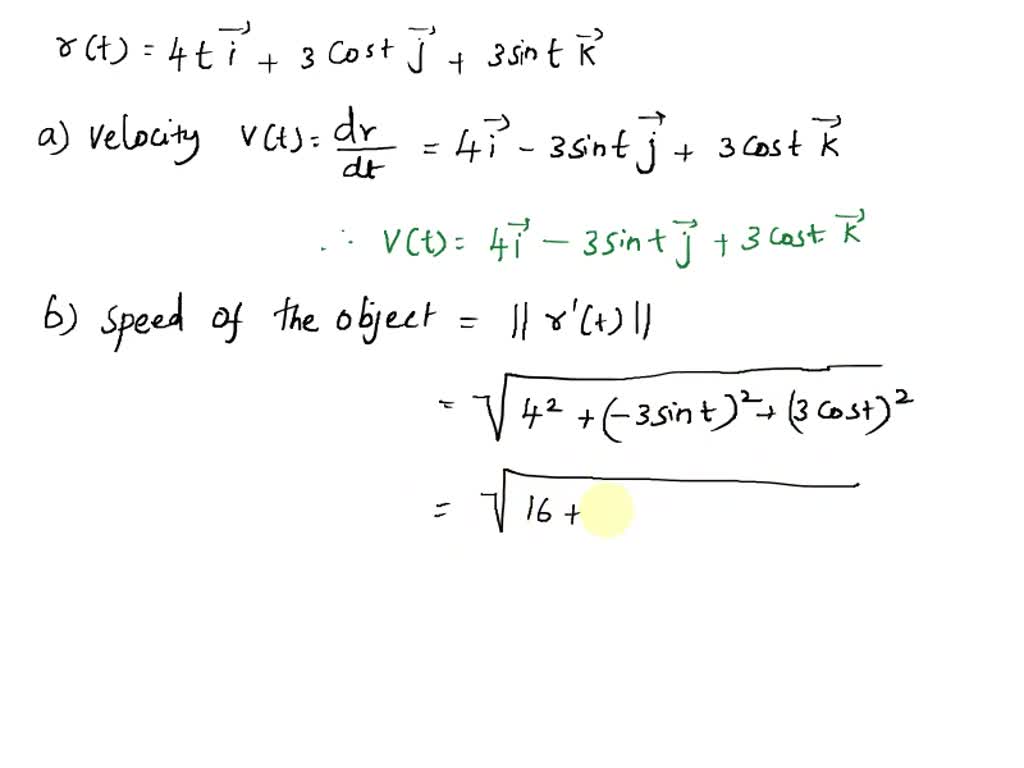 r(t) = 4t i⃗ + 3 cost j⃗ + 3sint k⃗
a) velocity v(t) = dr/dt = 4i⃗ - 3sint j⃗ + 3cost k⃗
∴ v(t) = 4i⃗ - 3sint j⃗ + 3cost k⃗
b) speed of the object = || r'(t) ||
= √(4² + (-3sint)² + (3cost)²
= √(16 +